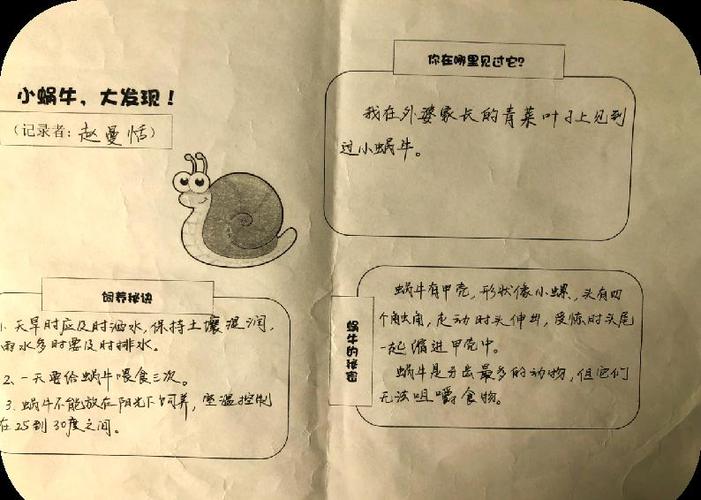 小蜗牛，大发现！
（记录者：赵曼恬）
饲养秘诀
1. 天旱时应及时洒水，保持土壤湿润，
雨水多时要及时排水。
2、一天要给蜗牛喂食三次。
3. 蜗牛不能放在阳光下饲养，室温控制
在25到30度之间。
你在哪里见过它？
我在外婆家长的青菜叶子上见到
过小蜗牛。
蜗牛的秘密
蜗牛有甲壳，形状像小螺，头有四
个触角，走动时头伸出，受惊时头尾
一起缩进甲壳中。
蜗牛是牙齿最多的动物，但它们
无法咀嚼食物。